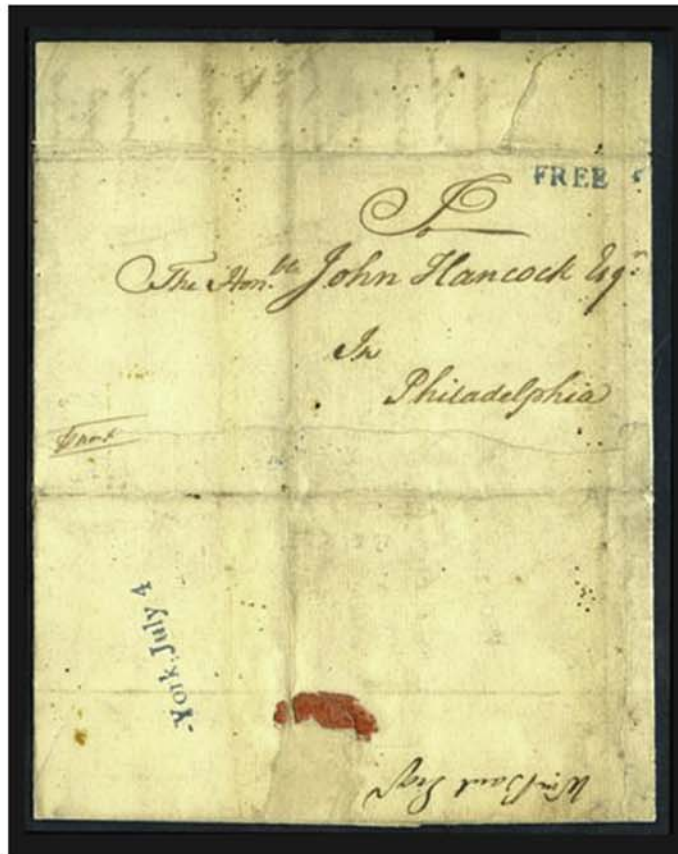 FREE
To
The Hon.ble John Hancock Esqr.
In
Philadelphia
York: July 4
Esqr